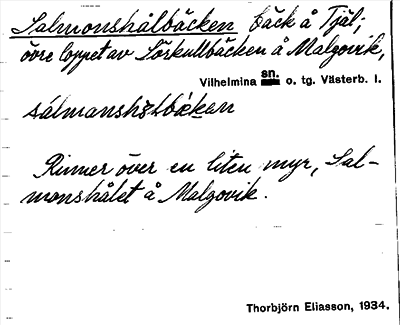 Salmonshålbäcken bäck å Tjäl;
övre loppet av Sörkullbäcken å Malgovik,
Vilhelmina sn. o. tg. Västerb. l.
sálmanshɔlbäkɛn
Rinner över en liten myr, Sal-
monshålet å Malgovik.
Thorbjörn Eliasson, 1934.